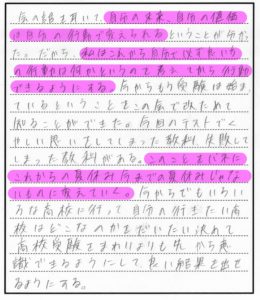 の話を聞いて、自分の未来、自分の価値
は自分の行動で変えられるということが分か
た。だから、私はこれから自分で
の行動は何かというのを考えてから行動
できるようにする。今からもう受験は始ま
ているということをこの会で改めて
知ることができた。今回のテストでく
やしい思いをしてしまった教科、失敗して
しまった教科がある。このことをバネに
これからの夏休み今までの夏休みじゃな
いものに変えていく。今からでもいろい
ろな高校に行って自分の行きたい高
校はどこなのかまだいたい決めて
高校受験をまわりよりも先から意
識できるようにして、良い結果を出せ
るようにする。